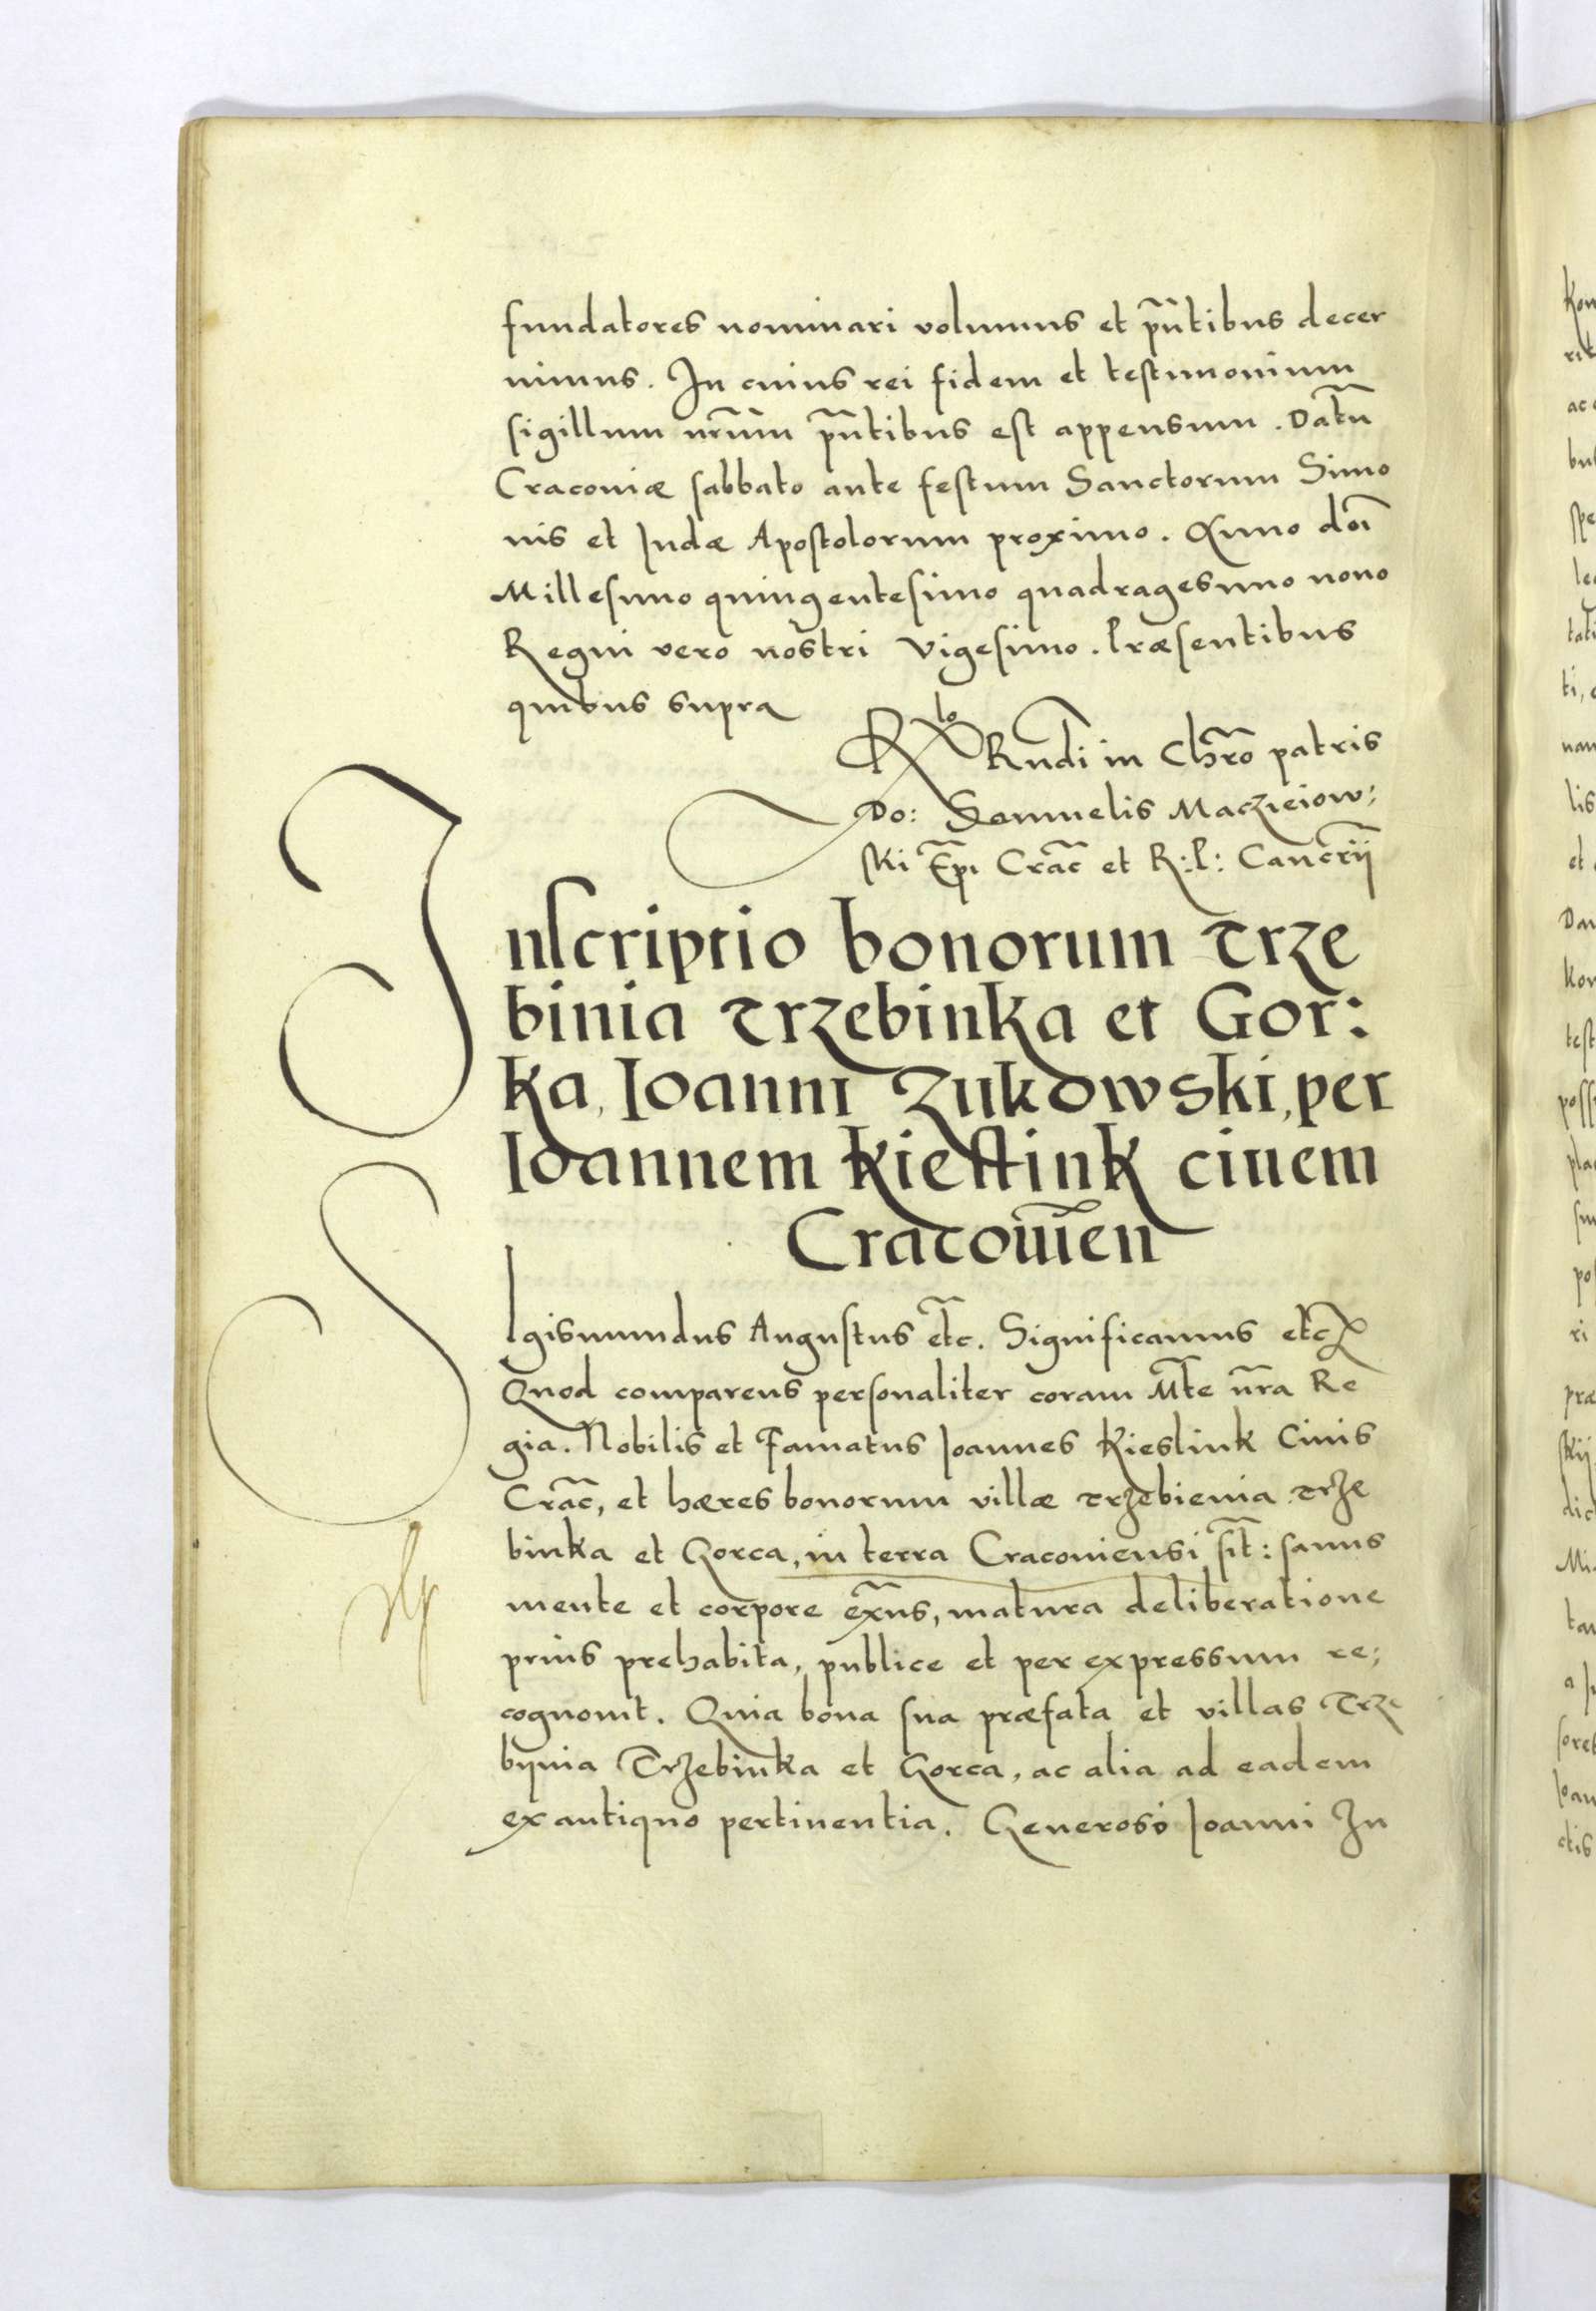 fundatores nominari volumus et pñtibus decer
nimus. In cuius rei fidem et testimonium
sigillum nr̃um pñtibus est appensum. Datũ
Cracoviæ sabbato ante festum Sanctorum Simo
nis et Judæ Apostolorum proximo. Anno doĩ
Millesimo quingentesimo quadragesimo nono
Regni vero nostri Vigesimo. Præsentibus
quibus supra
Rñdi in Chr̃o patris
Do: Samuelis Maczieiow:
ski Ep̃i Crac̃ et R: P: Cancr̃ij
Inscriptio bonorum Trze
binia Trzebinka et Gor:
ka, Ioanni Zukowski, per
Ioannem Kiestink civem
Cracovien̄
Sigismundus Augustus et̃c. Significamus etc
Quod comparens personaliter coram M̃te nr̃a Re
gia. Nobilis et Famatus Joannes Kieslink Civis
Crac̃, et hæres bonorum villæ Trzebienia Trze
binka et Gorca, in terra Cracoviensi sit̃: sanus
mente et corpore ex̃ns, matura deliberatione
prius prehabita, publice et per expressum re;
cognovit. Quia bona sua præfata et villas Trze
bijnia Trzebinka et Gorca, ac alia ad eadem
ex antiquo pertinentia. Generoso Joanni Zu